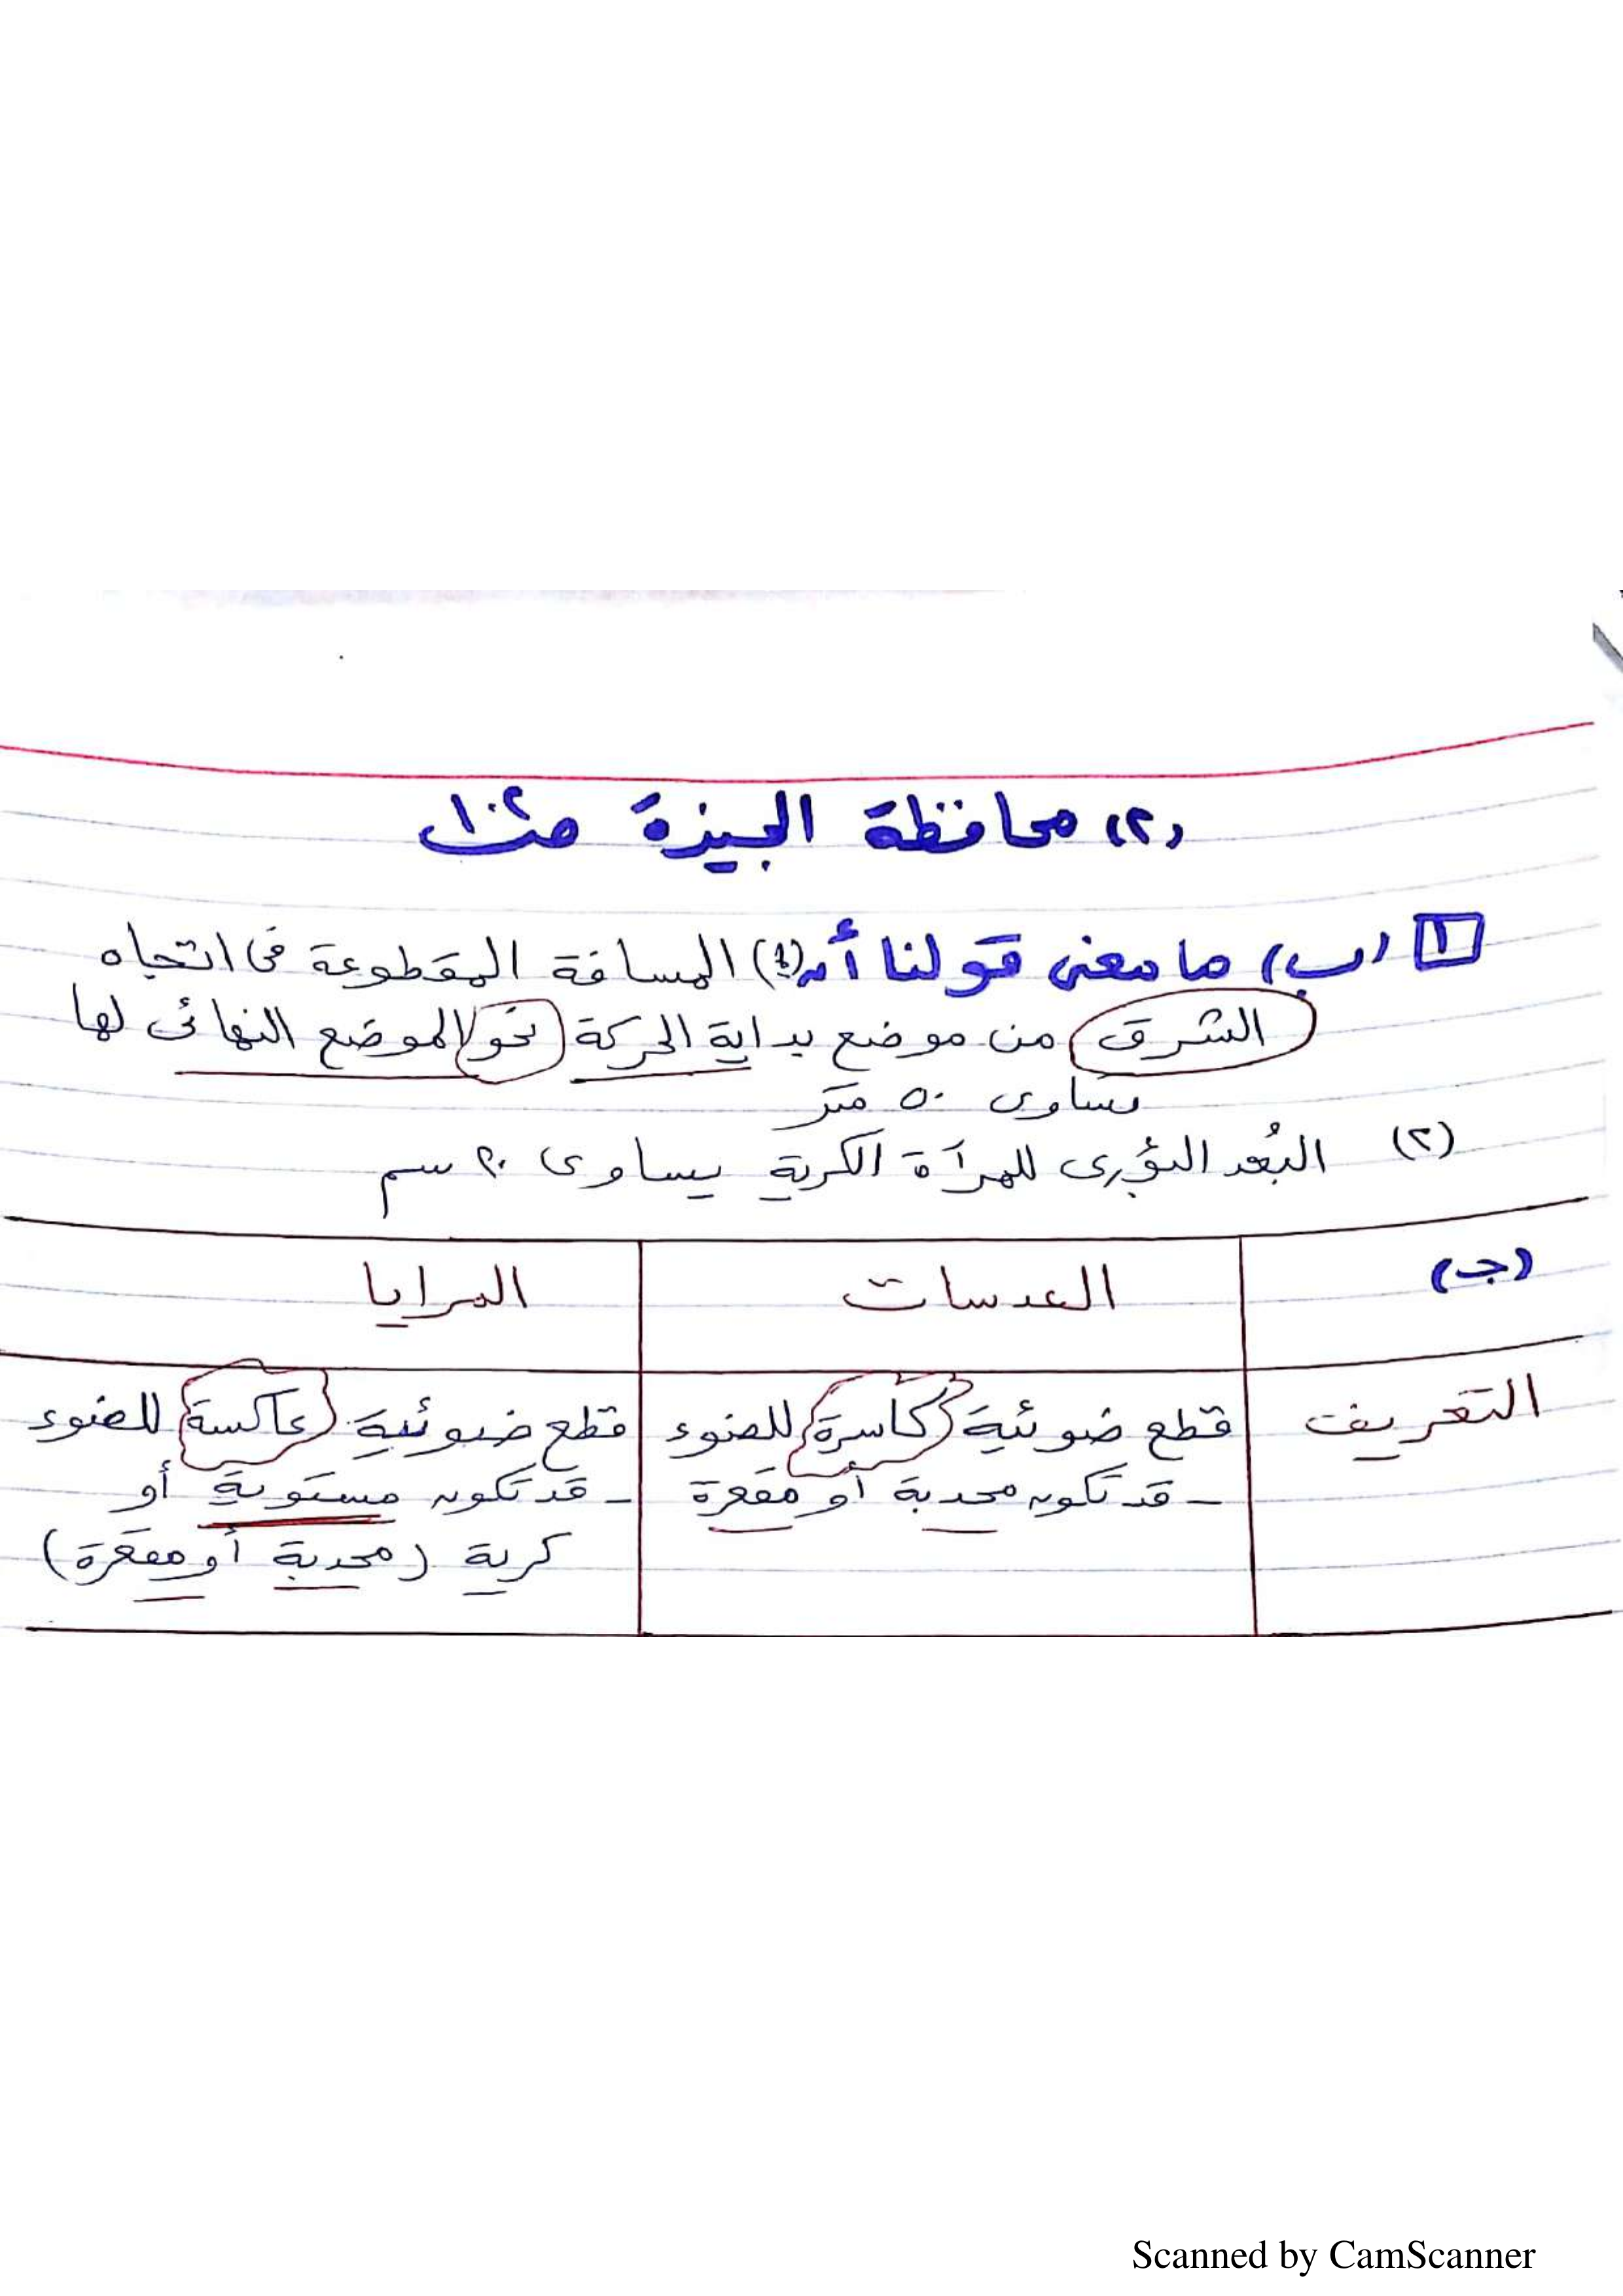 (٢) محافظة الجيزة صـ١٠٢
١ (ب) ما معنى قولنا أن (١) المسافة المقطوعة فى اتجاه
الشرق من موضع بداية الحركة نحو الموضع النهائى لها
تساوى ٥٠ متر
(٢) البُعد البؤرى للمرآة الكرية يساوى ٢٠ سم
(جـ) العدسات المرايا
التعريف قطع ضوئية كاسرة للضوء قطع ضوئية عاكسة للضوء
- قد تكون محدبة أو مقعرة - قد تكون مستوية أو
كرية (محدبة أو مقعرة)
Scanned by CamScanner